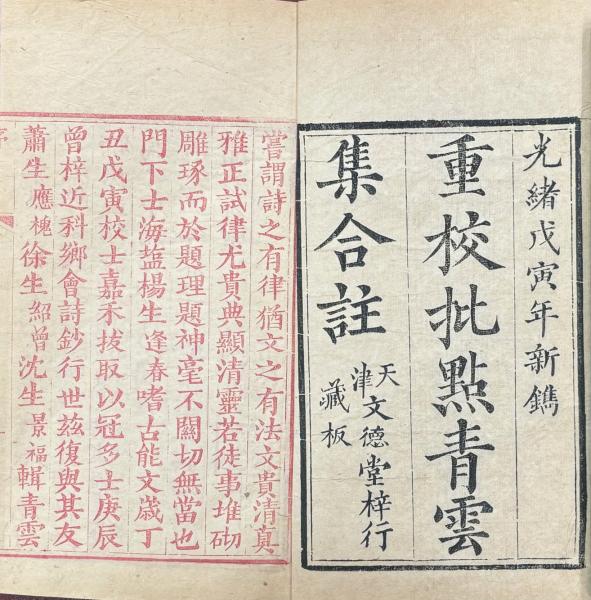 光緒戊寅年新鐫
重校批點青雲
集合註
天津文德堂梓行
藏板
嘗謂詩之有律猶文之有法文貴清真
雅正試律尤貴典顯清靈若徒事堆砌
雕琢而於題理題神毫不關切無當也
門下士海盐楊生逢春嗜古能文歲丁
丑戊寅校士嘉禾拔取以冠多士庚辰
曾梓近科鄉會詩鈔行世茲復與其友
蕭生應槐徐生紹曾沈生景福輯青雲
序
一